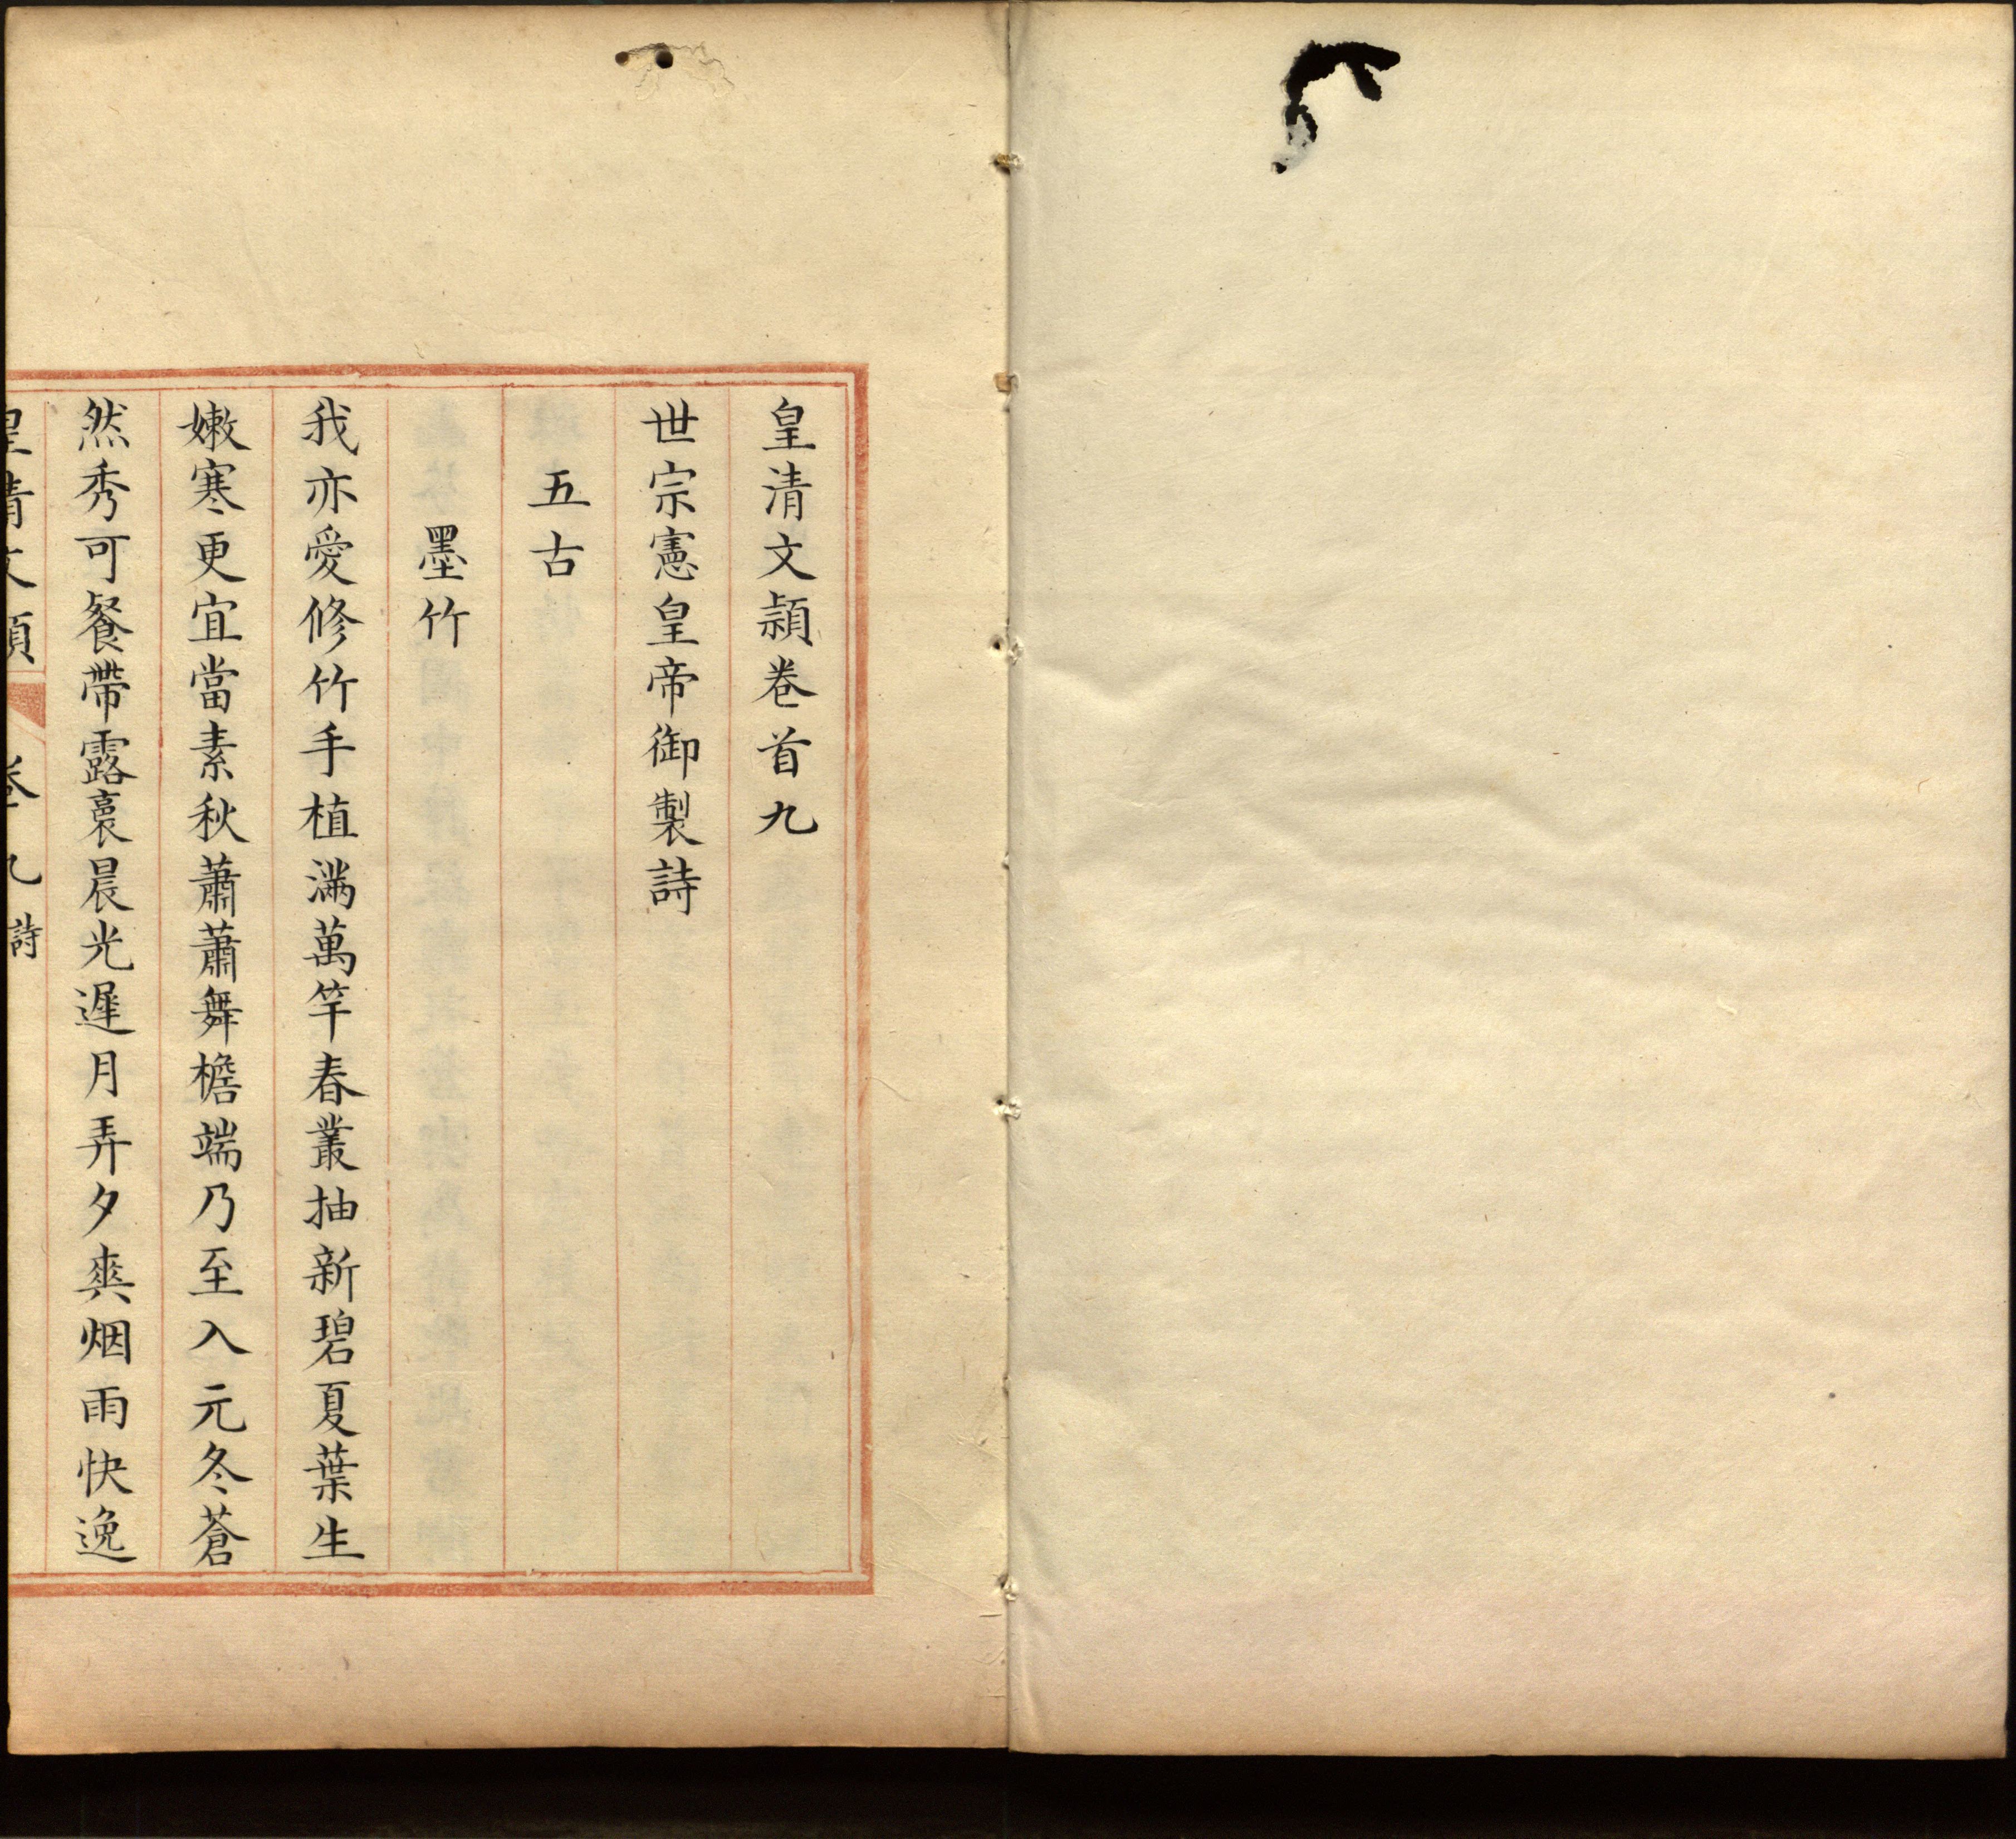 皇清文頴卷首九
世宗憲皇帝御製詩
五古
墨竹
我亦愛修竹手植滿萬竿春叢抽新碧夏葉生
嫩寒更宜當素秋蕭蕭舞檐端乃至入元冬蒼
然秀可餐帶露裛晨光遲月弄夕爽烟雨快逸
皇清文頴 卷九 詩